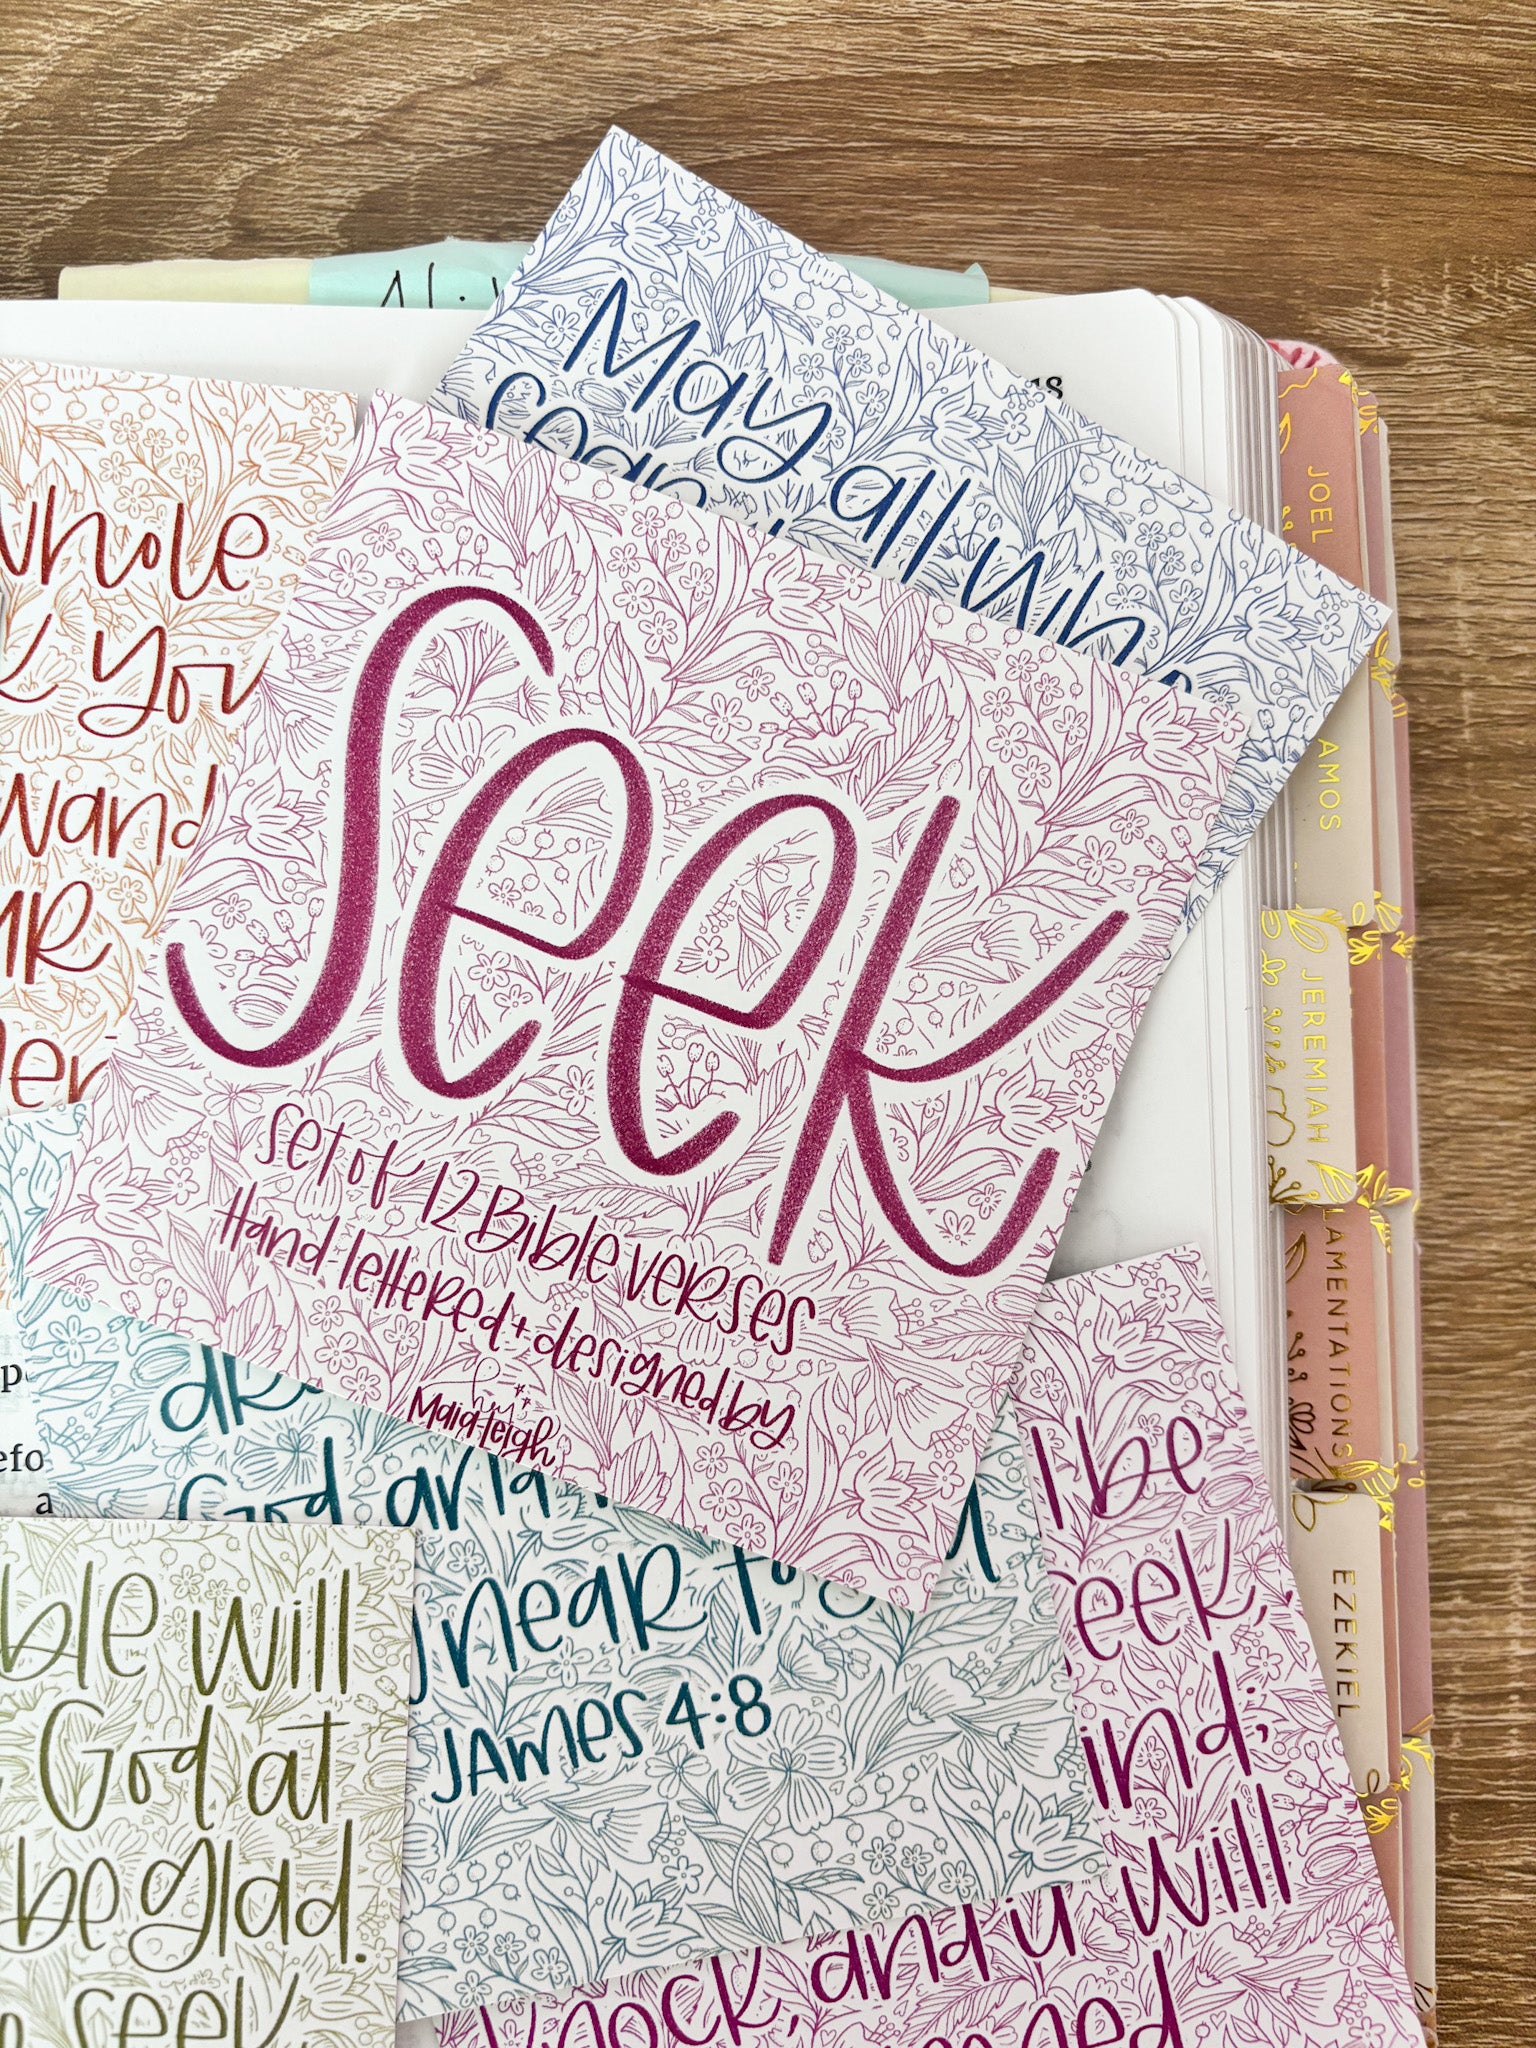 May all who
18
whole
you
wand
Seek
Set of 12 Bible verses
Hand lettered + designed by
Maia-Leigh
God and
near to
James 4:8
ble will
God at
be glad.
seek
l be
eek,
ind;
knock, and it will
JOEL
AMOS
JEREMIAH
LAMENTATIONS
EZEKIEL
efo
a